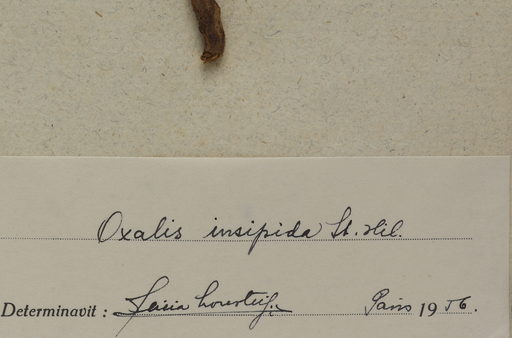 Oxalis insipida St. Hil.
Determinavit : Alicia Lourteig Paris 1956.